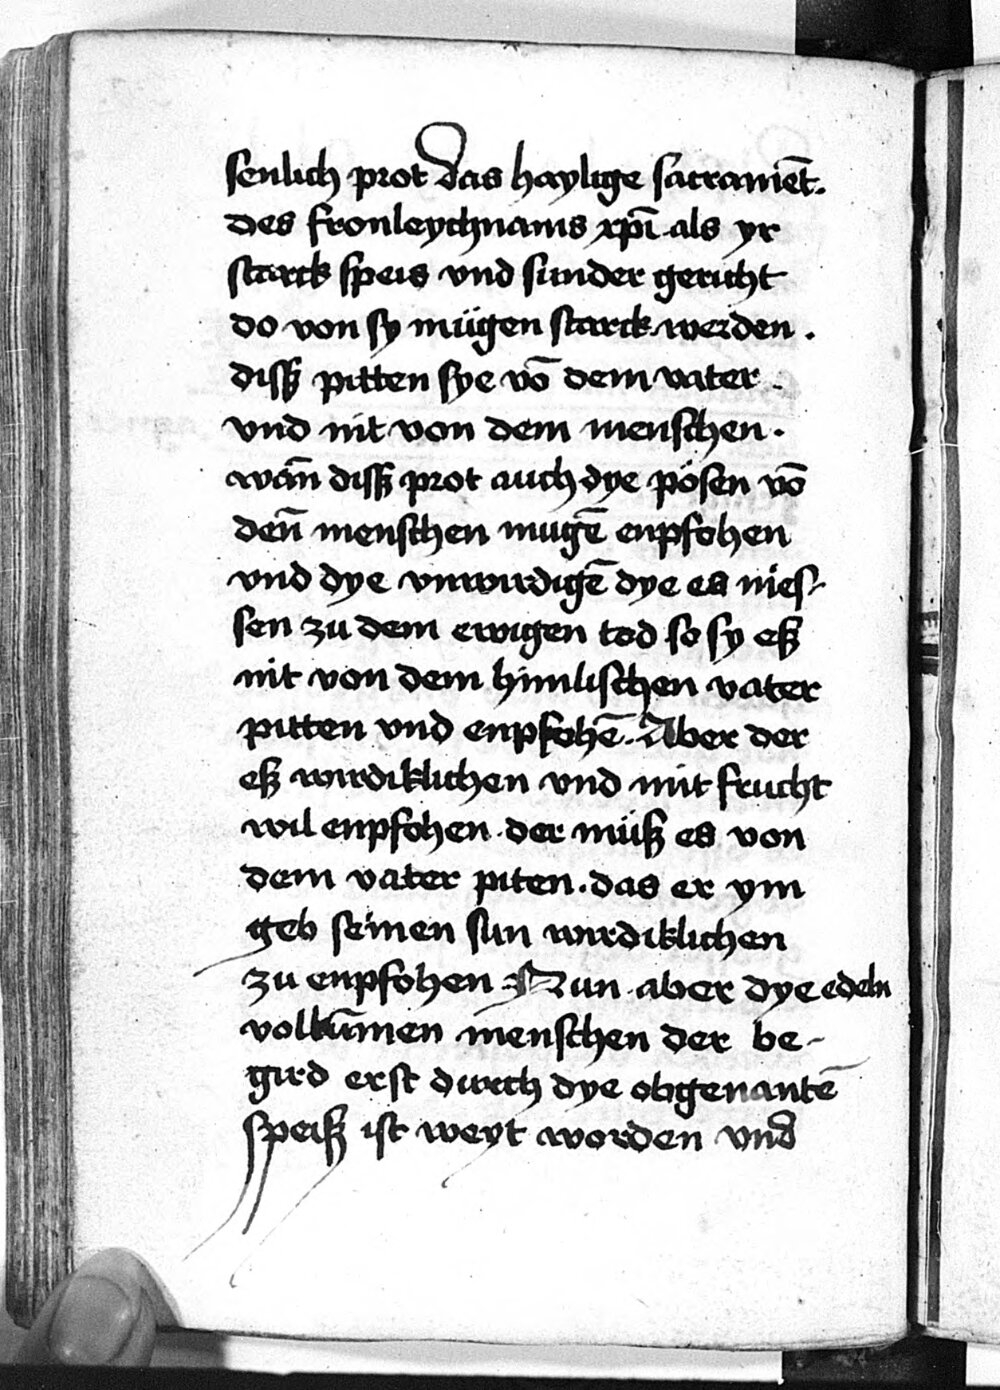 senlich prot das haylige sacramēt.
des fronleychnams xp̄i als yr
starck speis vnd sunder gericht
do von sy mügen starck werden .
disß pitten sye vō dem vater .
vnd nit von dem menschen .
wān disß prot auch dye pösen vō
den̄ menschen mugē enpfohen
vnd dye vnwirdigē dye es nies-
sen zu dem ewigen tod so sy eß
nit von dem himlischen vater
pitten vnd enpfohē. Aber der
eß wirdiklichen vnd mit frucht
wil enpfohen der müß es von
dem vater piten . das er ym
geb seinen sun wirdiklichen
zu enpfohen Nun aber dye edeln
volkūmen menschen der be-
gird erst durch dye obgenantē
speiß ist weyt worden vnd